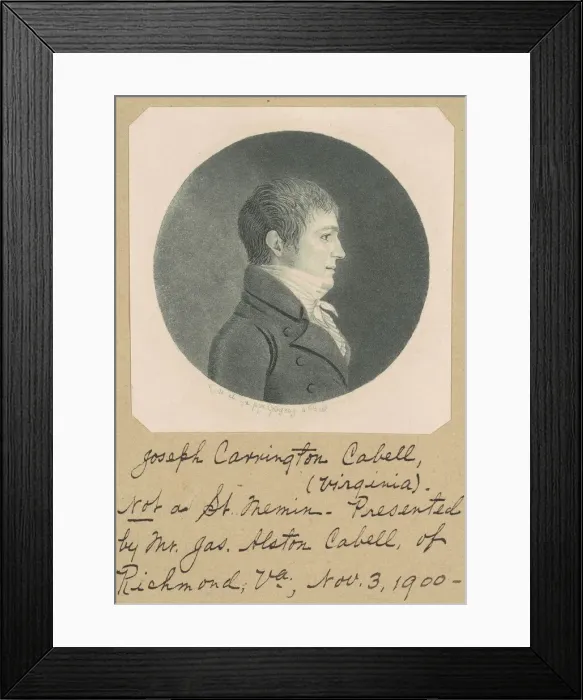 Joseph Carrington Cabell,
(Virginia).
Not a St. Memin - Presented
by Mr. Jas. Alston Cabell, of
Richmond, Va., Nov. 3, 1900 -